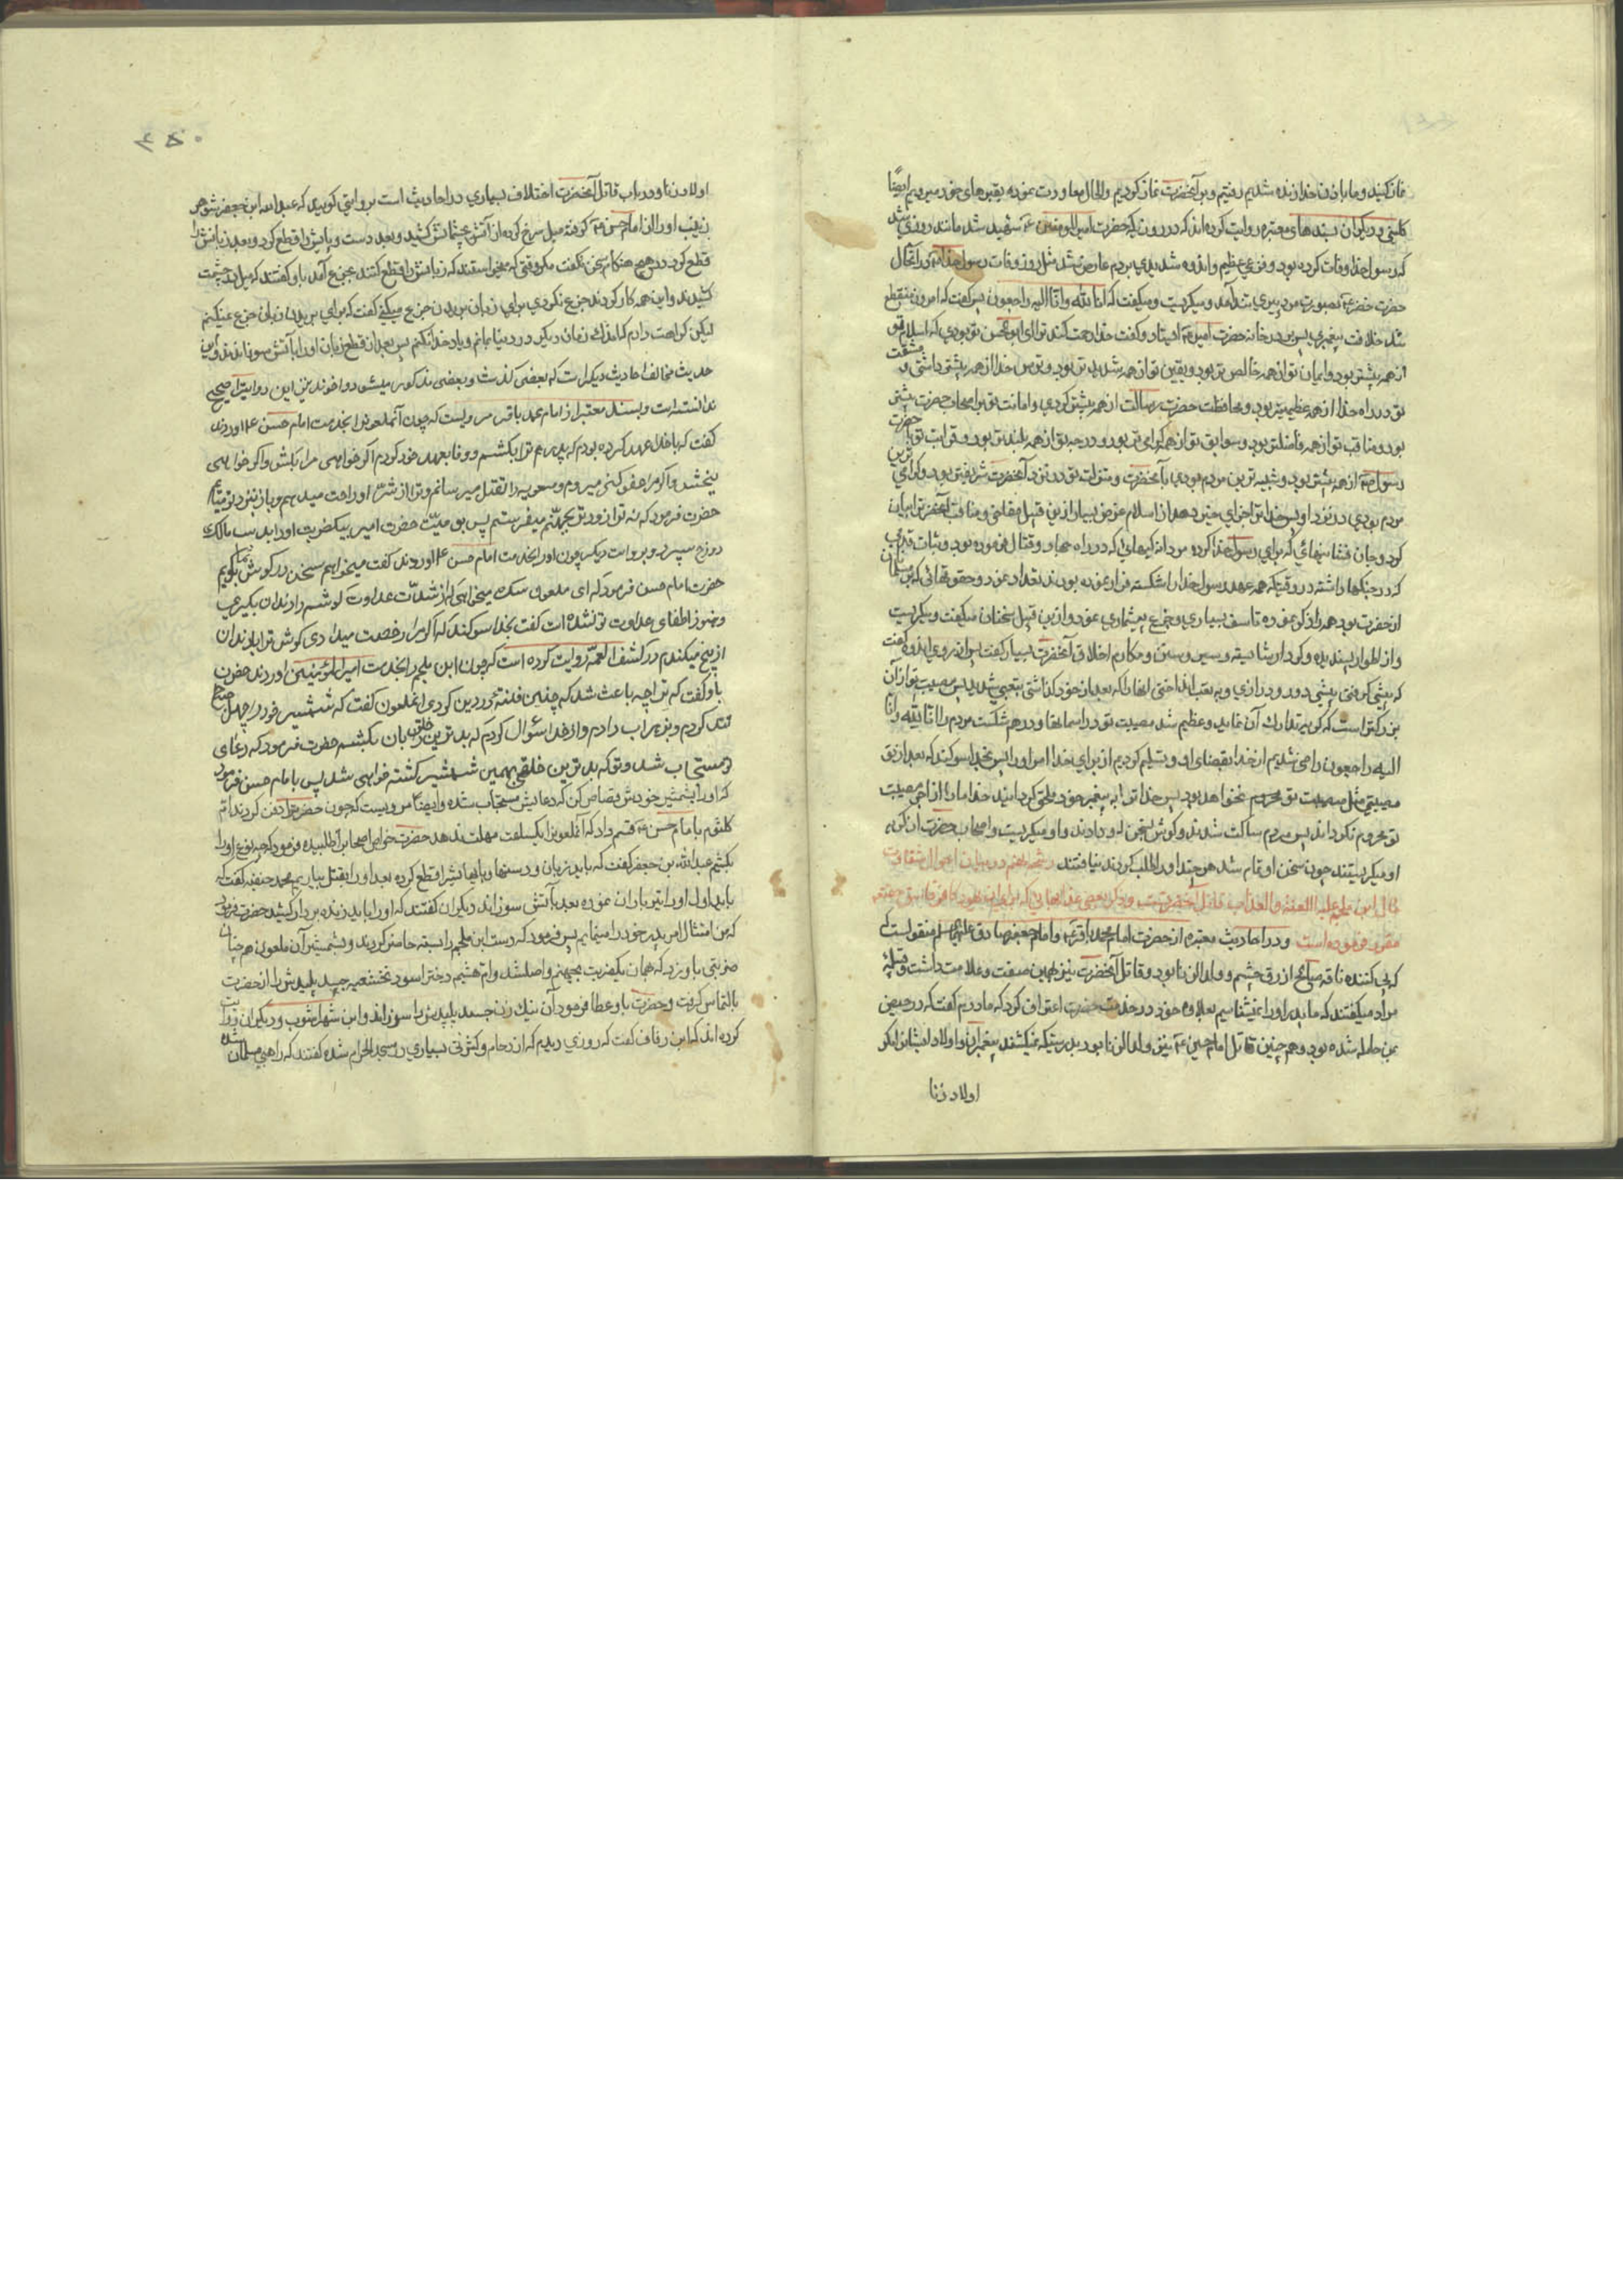 نماز کنید و ما باذن خدا زنده شدیم رفتیم و بر آنحضرت نماز کردیم و الحال معاودت نموده بقبرهای خود میرویم ایضًا
کلینی و دیگران بسندهای معتبره روایت کرده‌اند که در روزیکه حضرت امیرالمؤمنین ع شهید شد مانند روزی شد
که رسول خدا وفات کرده بود و فزع عظیم و اندوه شدیدی بمردم عارض شد مثل روز وفات رسول خدا ص در آنحال
حضرت خضر ع بصورت مرد پیری بتد آمد و میکریست و میکفت که انا لله و انا الیه راجعون پس کفت که امروز منقطع
شد خلافت پیغمبری پس بر در خانه حضرت امیر ع ایستاد و کفت خدا رحمت کند ترا ای ابو الحسن تو بودی که اسلام تو
از همه پیشتر بود و ایمان تو از همه خالص تر بود و یقین تو از همه شدید تر بود و ترس خدا از همه بیشتر داشتی و مشقت
تو در راه خدا از همه عظیمتر بود و محافظت حضرت رسالت از همه بیشتر کردی و امانت تو بر اصحاب حضرت بیشتر
بود و مناقب تو از همه فاضلتر بود و سوابق تو از همه کرامی تر بود و درجه تو از همه بلند تر بود و قرابت تو با حضرت
رسول ص از همه بیشتر بود و شبیه ترین مردم بودی بآنحضرت و منزلت تو در نزد آنحضرت شریفتر بود و کرامی ترین
مردم بودی در نزد او پس خدا ترا جزای خیر دهد از اسلام غرض بسیار ازین قبیل فضایل و مناقب آنحضرترا بیان
کرد و جان فشانیهائی که برای رسول خدا کرده مردانه کیهائی که در راه جهاد و قتال فرموده بود و ثبات قدمی
که در جنکها داشته در وقتیکه همه عهد رسول خدا را شکسته فرار نموده بودند تعداد نمود و حقوقهائی که بر مسلمانان
از حضرت بود همه را ذکر نموده تاسف بسیاری و جزع بیشماری نمود و ازین قبیل سخنان میکفت و میکریست
و از اطوار پسندیده و کردار شایسته و سیر و سنن و مکارم اخلاق آنحضرت بسیار کفت پس از روی اندوه کفت
که پیشی کرفتی پیشی دور و درازی و به تعب انداختی آنها را که بعد از خود کذاشتی بتعبی شدید پس مصیبت تو از آن
بزرکتر است که کریه تدارک آن نماید و عظیم شد مصیبت تو در آسمانها و در هم شکست مردم را انا لله و انا
الیه راجعون راضی شدیم از خدا بقضای او و تسلیم کردیم از برای خدا امر او را پس بخدا سوکند که بعد از تو
مصیبتی مثل مصیبت تو بمردم نخواهد بود پس خدا ترا به پیغمبر خود ملحق کرداند خدا ما را از اجر مصیبت
تو محروم نکرداند پس مردم ساکت شدند و کوش بسخن او دادند و او میکریست و اصحاب حضرت از کریه
او میکریستند چون سخن او تمام شد هر چند او را طلب کردند نیافتند رشحه نهم در بیان احوال شقاوت
مآل ابن ملجم علیه اللعنة والعذاب قاتل آنحضرتست و ذکر بعضی عذابهائی که برای
مقرر فرموده است و در احادیث معتبره از حضرت امام محمد باقر ع و امام جعفر صادق علیهم السلم منقولست
که پی کننده ناقه صالح ازرق چشم و ولدالزنا بود و قاتل آنحضرت نیز همین صفت و علامت داشت و قبیله
مراد میکفتند که ما پدر او را نمیشناسیم بعلاوه خود در خدمت حضرت اعتراف کرد که مادرم کفت که در حیض
بمن حامله شده بود و همچنین قاتل امام حسین ع نیز ولدالزنا بود بدرستیکه نمیکشند پیغمبران و اولاد ایشانرا مکر
اولاد زنا
۴۵۰
اولاد زنا و در باب قاتل آنحضرت اختلاف بسیاری در احادیث است بروایتی کویند که عبدالله ابن جعفر شوهر
زینب او را از امام حسن ع کرفته میل سرخ کرده از آتش بچشمانش کشید و بعد دست و پایش را قطع کرد و بعد زبانش را
قطع کرد در هیچ هنکام سخن نکفت مکر وقتی که میخواستند که زبانش را قطع کنند بجزع آمد باو کفتند که میل بر چشمت
کشیدند و این همه کار کردند جزع نکردی برای زبان بریدن جزع میکنی کفت که برای بریدن زبان جزع نمیکنم
لیکن کراهت دارم که اندک زمان دیکر در دنیا بمانم و یاد خدا نکنم پس بعد از قطع زبان او را بآتش سوزاندند و این
حدیث مخالف احادیث دیکر است که بعضی کذشت و بعضی مذکور میشود و آخوند نیز این روایترا صحیح
ندانسته است و بسند معتبر از امام محمد باقر مرویست که چون آنملعونرا بخدمت امام حسن ع آوردند
کفت که با خدا عهد کرده بودم که پدرم ترا بکشم و وفا بعهد خود کردم اکر خواهی مرا بکش و اکر خواهی
ببخش و اکر مرا عفو کنی میروم و معویه را بقتل میرسانم و ترا از شر او راحت میدهم و باز بنزد تو میآیم
حضرت فرمود که نه ترا زودتر بجهنّم میفرستم پس بوصیّت حضرت امیر بیکضربت او را بدست مالک
دوزخ سپرد و بروایت دیکر چون او را بخدمت امام حسن ع آوردند کفت میخواهم سخنی در کوش شما بکویم
حضرت امام حسن فرمود که ای ملعون سک میخواهی که از شدّت عداوت کوشم را دندان بکیری
و هنوز اطفای عداوت تو نشده است کفت بخدا سوکند که اکر مرا رخصت میدادی کوش ترا با دندان
از بیخ میکندم در کشف الغمّه روایت کرده است که چون ابن ملجم را بخدمت امیرالمؤمنین آوردند حضرت
باو کفت که ترا چه باعث شد که چنین فتنهٔ در دین کردی آنملعون کفت که شمشیر خود را چهل صباح
تند کردم و بزهر آب دادم و از خدا سئوال کردم که بدترین خلق را بآن بکشم حضرت فرمود که دعای
تو مستجاب شد و تو که بدترین خلقی بهمین شمشیر کشته خواهی شد پس بامام حسن فرمود
که او را بشمشیر خودش قصاص کن که دعایش مستجاب شده و ایضًا مرویست که چون حضرترا دفن کردند امّ
کلثوم بامام حسن ع قسم داد که آنملعونرا یکساعت مهلت ندهد حضرت خواص اصحابرا طلبیده فرمود که چه نوع او را
بکشیم عبدالله بن جعفر کفت که باید زبان و دستها و پاهایشرا قطع کرده بعد او را بقتل بیاریم محمد حنفیه کفت که
باید اول او را تیر باران نموده بعد بآتش سوزاند دیکران کفتند که او را باید زنده بر دار کشید حضرت فرمود
که من امتثال امر پدر خود را مینمایم پس فرمود که دست ابن ملجم را بسته حاضر کردند و بشمشیر آن ملعون همچنان
ضربتی باو زد که همان یکضربت بجهنم واصل شد و امّ هشیم دختر اسود نخعی جسد پلیدش را از حضرت
بالتماس کرفت و حضرت باو عطا فرمود آن نیک زن جسد پلیدش را سوزاند و ابن شهرآشوب و دیکران روایت
کرده‌اند که ابن رفاف کفت که روزی دیدم که ازدحام و کثرتی بسیاری در مسجدالحرام شده کفتند که راهبی مسلمان شده